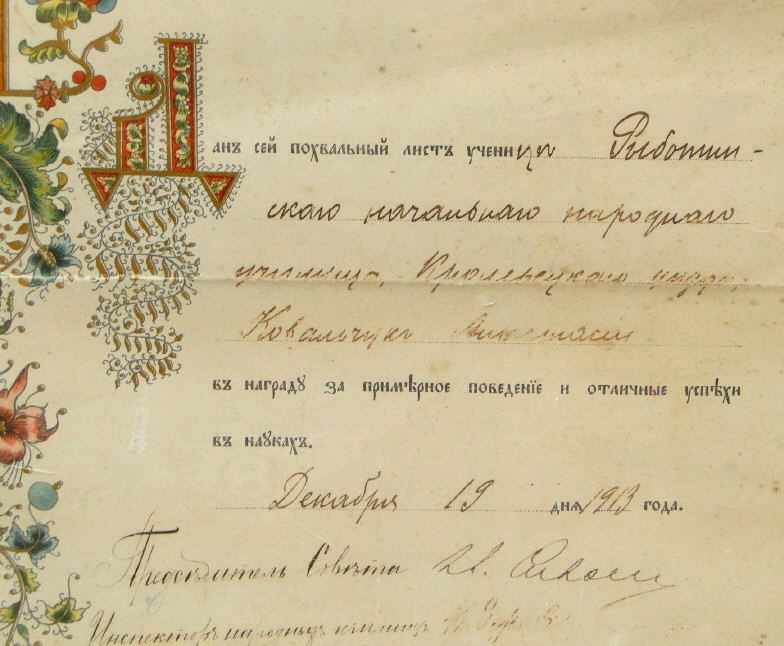 Данъ сей похвальный листъ ученицѣ
скаго начальнаго народнаго
училища, Кролевецкаго уѣзда,
Ковальчукъ Анастасіи
въ награду за примѣрное поведеніе и отличные успѣхи
въ наукахъ.
Декабря 19 дня 1913 года.
Предсѣдатель Совѣта
Инспекторъ народныхъ училищъ